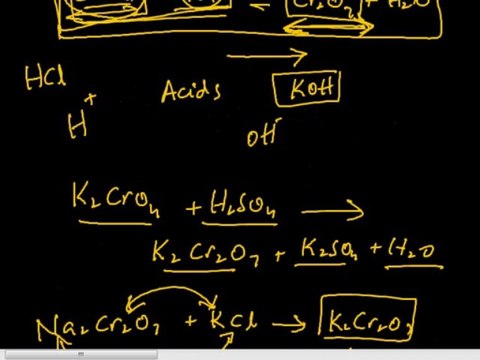 = Cr₂O₇ + H₂O
HCl
H⁺ Acids KOH
OH⁻
K₂CrO₄ + H₂SO₄ →
K₂Cr₂O₇ + K₂SO₄ + H₂O
Na₂Cr₂O₇ + KCl → K₂Cr₂O₇